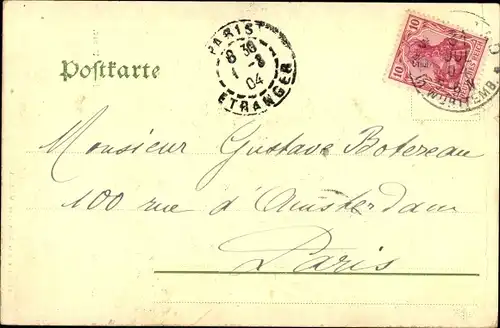 PARIS
8 30
1-8
04
ETRANGER
10
10
WÜRTTEMB.
Postkarte
Monsieur Gustave Botereau
100 rue d'Amsterdam
Paris